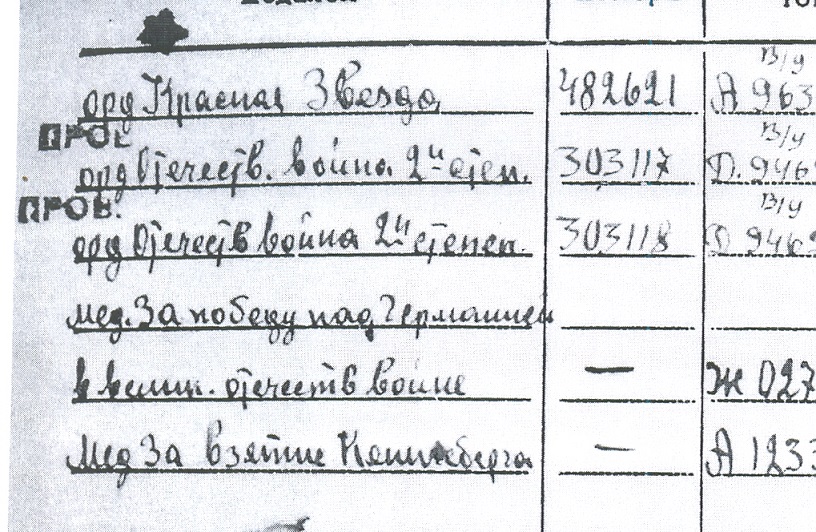 В/у
орд Красная Звезда 482621 А 963
ПРОВ
В/у
орд Отечеств. война 2й степ. 303117 Д. 946
ПРОВ.
В/у
орд Отечеств война 2й степен. 303118 Д 946
мед. За победу над Германией
в велик. отечеств войне — Ж 027
Мед За взятие Кенигсберга — А 1233